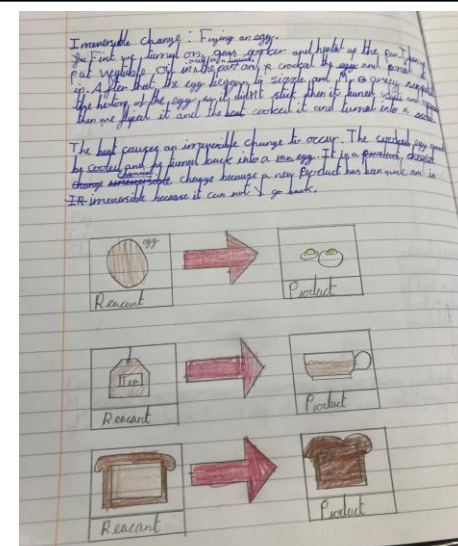 Irreversible change : Frying an egg.
First we turned on gas cooker and heated up the pan. I
put vegtable oil in the pan and cracked the egg and
in. After that the egg begun to sizzle and Mr
the bottom of the egg so it didnt stick then it turned
then we fliped it and the heat cooked it and turned into a
The heat causes an irreversible change to occur. The cooked egg
be cooled and be turned back into a raw egg. It is a
change irreversible chemical change because a new Product has ban made and is
IR irreversible because it can not go back.
egg
Reacant
Product
Tea
Reacant
Product
Reacant
Product